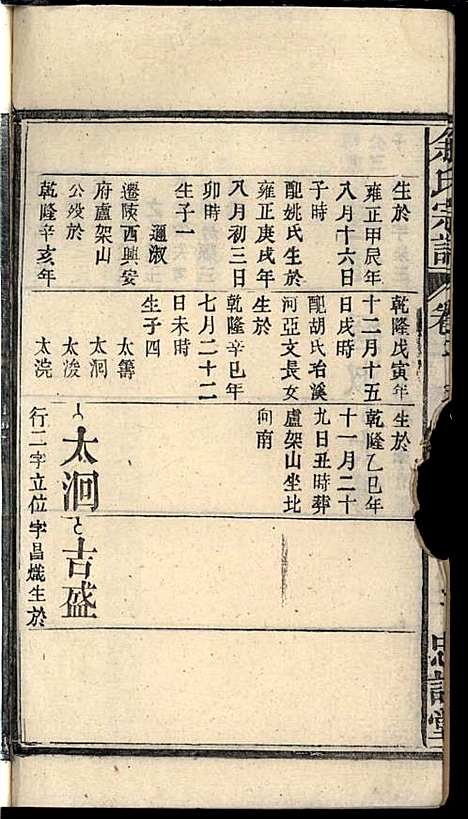 余氏宗譜
卷
忠諒堂
生於
雍正甲辰年
八月十六日
子時
配姚氏生於
雍正庚戌年
八月初三日
卯時
生子一
邇淑
遷陝西興安
府盧架山
公歿於
乾隆辛亥年
乾隆戊寅年
十二月十五
日戌時
配胡氏珆溪
河亞文長女
生於
乾隆辛巳年
七月二十二
日未時
生子四
太籌
太泂
太浚
太浣
生於
乾隆乙巳年
十一月二十
九日丑時葬
盧架山坐北
向南
太泂
行二字立位
吉盛
字昌熾生於